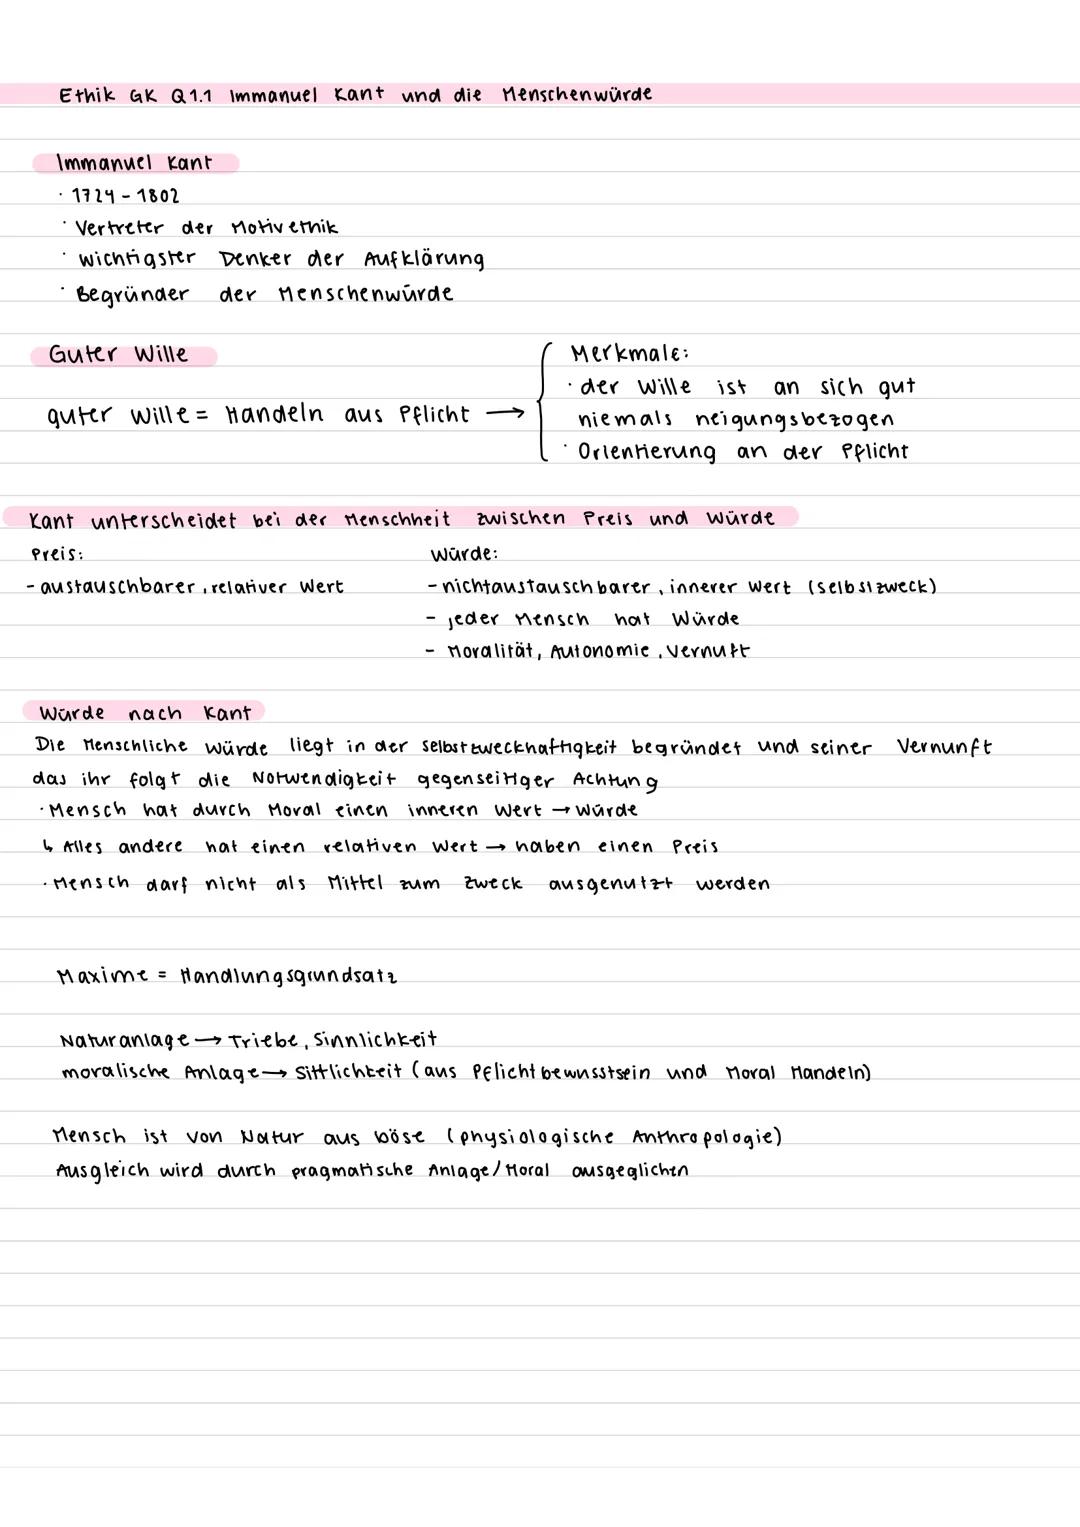 Ethik GK Q1.1 Immanuel Kant und die Menschenwürde
Immanuel Kant
· 1724 - 1802
· Vertreter der Motivethik
· wichtigster Denker der Aufklärung
· Begründer der Menschenwürde
Guter Wille
guter Wille = Handeln aus Pflicht →
Merkmale:
· der Wille ist an sich gut
niemals neigungsbezogen
· Orientierung an der Pflicht
Kant unterscheidet bei der Menschheit zwischen Preis und Würde
Preis:
- austauschbarer, relativer Wert
Würde:
- nichtaustauschbarer, innerer Wert (Selbstzweck)
- jeder Mensch hat Würde
- Moralität, Autonomie, Vernuft
Würde nach Kant
Die Menschliche Würde liegt in der selbstzweckhaftigkeit begründet und seiner Vernunft
das ihr folgt die Notwendigkeit gegenseitiger Achtung
· Mensch hat durch Moral einen inneren Wert → Würde
↳ Alles andere hat einen relativen Wert → haben einen Preis
· Mensch darf nicht als Mittel zum Zweck ausgenutzt werden
Maxime = Handlungsgrundsatz
Naturanlage → Triebe, Sinnlichkeit
moralische Anlage → Sittlichkeit (aus Pflichtbewusstsein und Moral Handeln)
Mensch ist von Natur aus böse (physiologische Anthropologie)
Ausgleich wird durch pragmatische Anlage/Moral ausgeglichen